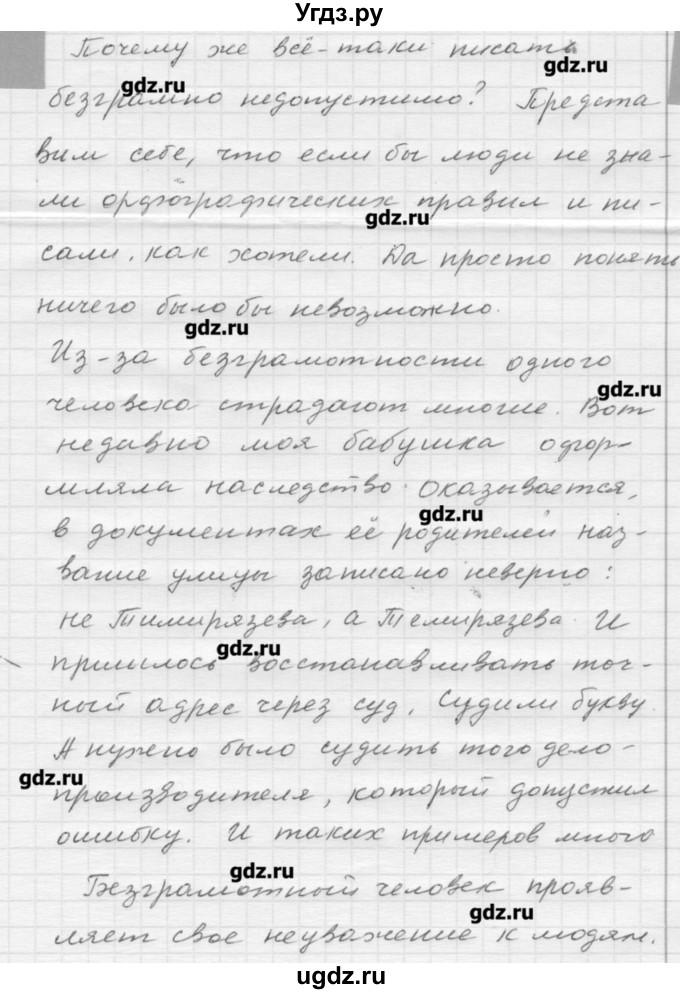 Угдз.ру
Почему же всё-таки писать
gdz.ru
gdz.ru
безграмно недопустимо? Предста
вим себе, что если бы люди не зна-
ли орфографических правил и пи-
gdz.ru
сали, как хотели. Да просто понять
ничего было бы невозможно.
gdz.ru
Из-за безграмотности одного
gdz.ru
человека страдают многие. Вот
недавно моя бабушка офор-
мляла наследство. Оказывается,
gdz.ru
в документах её родителей наз-
вание улицы записано неверно:
не Тимирязева, а Темирязева. И
gdz.ru
пришлось восстанавливать точ-
ный адрес через суд. Судили букву.
А нужно было судить того дело-
gdz.ru
производителя, который допустил
ошибку. И таких примеров много
gdz.ru
Безграмотный человек прояв-
gdz.ru
ляет свое неуважение к людям.
ugdz.ru